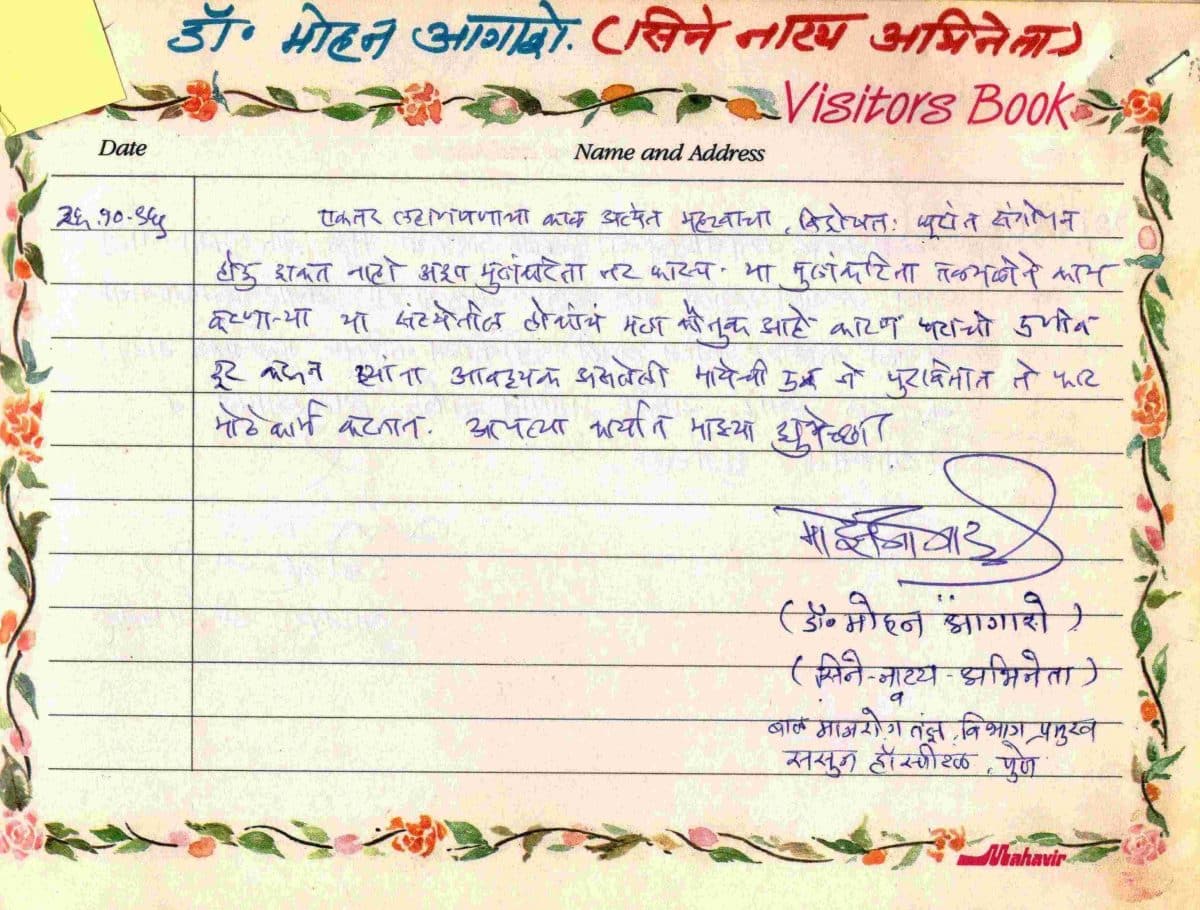 डॉ. मोहन आगाशे. (सिने नाट्य अभिनेता)
Visitors Book
Date Name and Address
२६.१०.९५ एकतर लहानपणाचा काळ अत्यंत महत्वाचा, विशेषतः घरात संगोपन
होऊ शकत नाही अशा मुलांकरिता तर फारच. या मुलांकरिता तळमळीने काम
करणाऱ्या या संस्थेतील लोकांचे मला कौतुक आहे कारण घराची उणीव
दूर करून त्यांना आवश्यक असलेली मायेची ऊब जे पुरवितात ते फार
मोठे कार्य करतात. आपल्या कार्यास माझ्या शुभेच्छा
(डॉ. मोहन आगाशे)
(सिने-नाट्य-अभिनेता)
व
बाल मानसरोग तंज्ञ, विभाग प्रमुख
ससुन हॉस्पीटल, पुणे
Mahavir